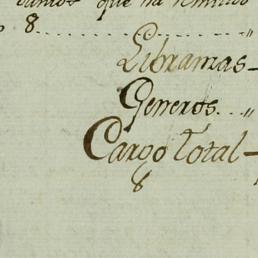 que ha remitido
8 . . . . . . . . . . . . . . . "
Libramas
Generos . . . "
Cargo Total
8